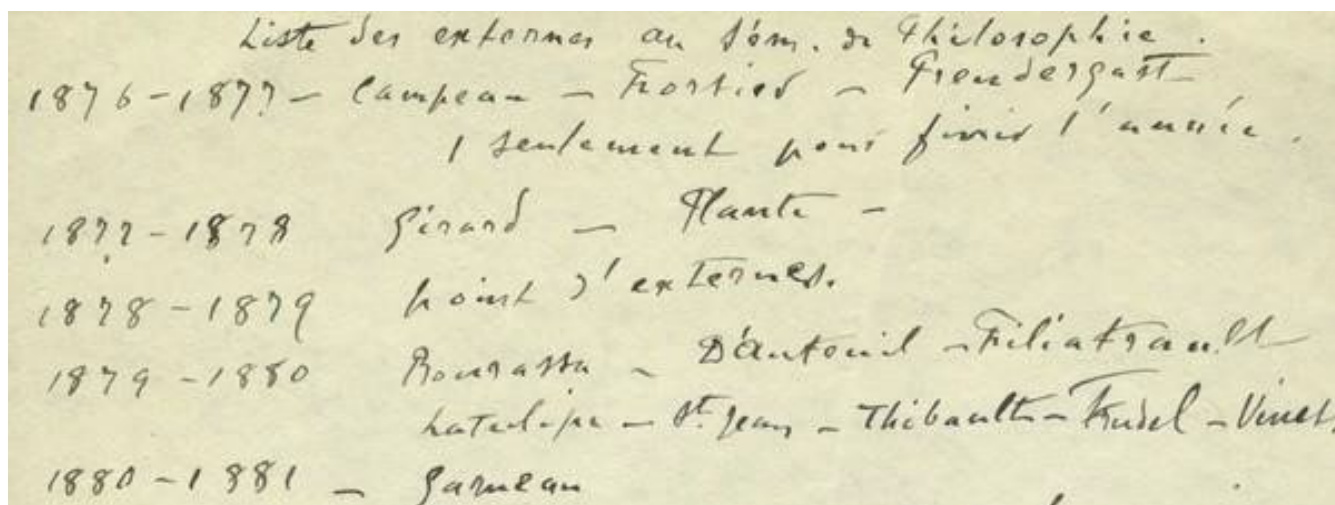 Liste des externes au Sém. de Philosophie.
1876-1877 - Campeau - Fortier - Prendergast
1 seulement pour finir l'année.
1877-1878 Girard - Plante -
1878-1879 point d'externes.
1879-1880 Bourassa - D'Auteuil - Filiatrault
Latulipe - St. Jean - Thibault - Trudel - Vinet.
1880-1881 - Garneau